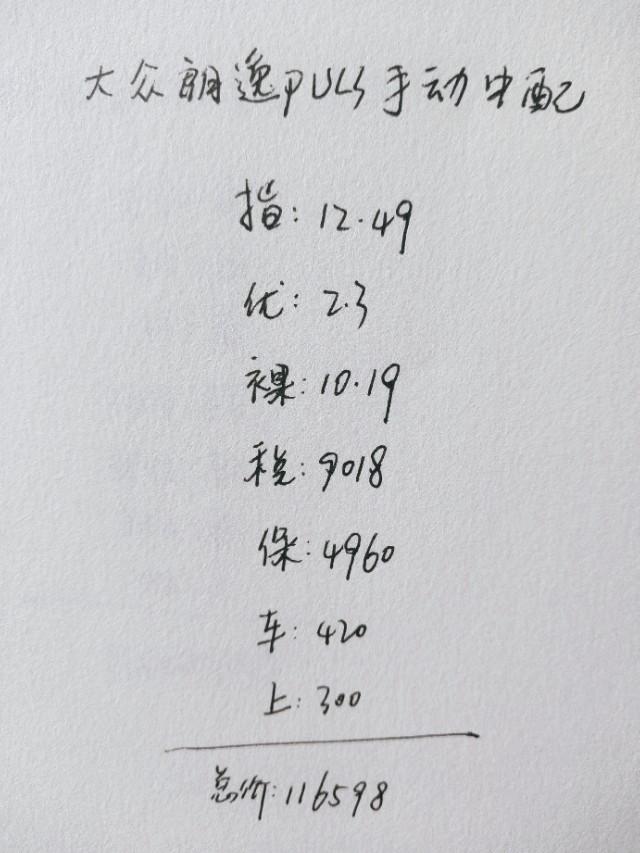 大众朗逸PULS手动中配
指: 12.49
优: 2.3
裸: 10.19
税: 9018
保: 4960
车: 420
上: 300
总价: 116598